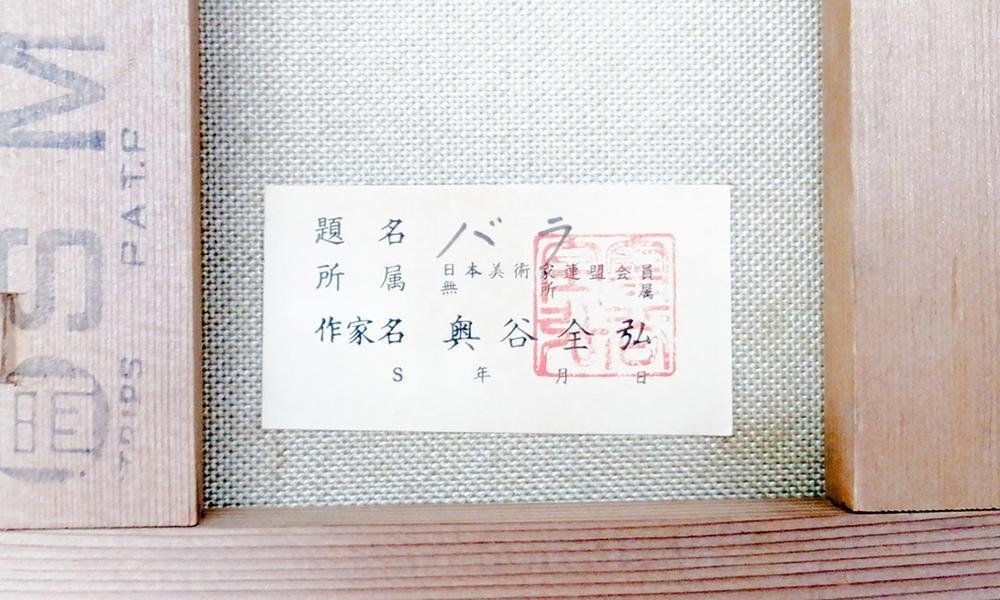 題名 バラ
所属 日本美術家連盟会員
無所属
作家名 奥谷全弘
S 年 月 日
SM
PAT.P